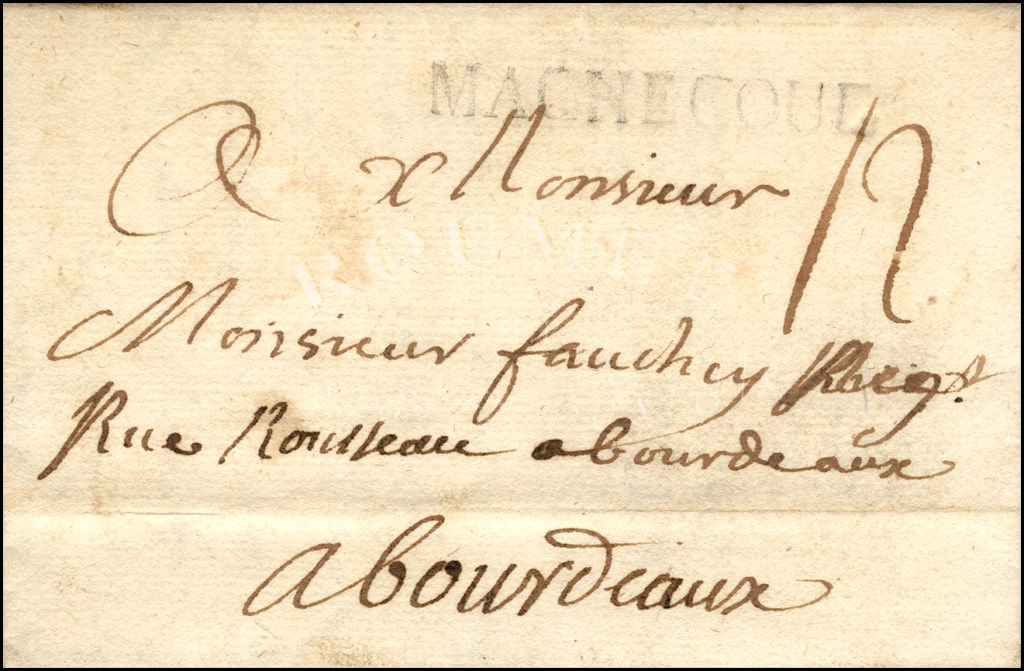 MACHECOUL
A Monsieur 12
Monsieur fauchey
Rue Rousseau a bourdeaux
a bourdeaux